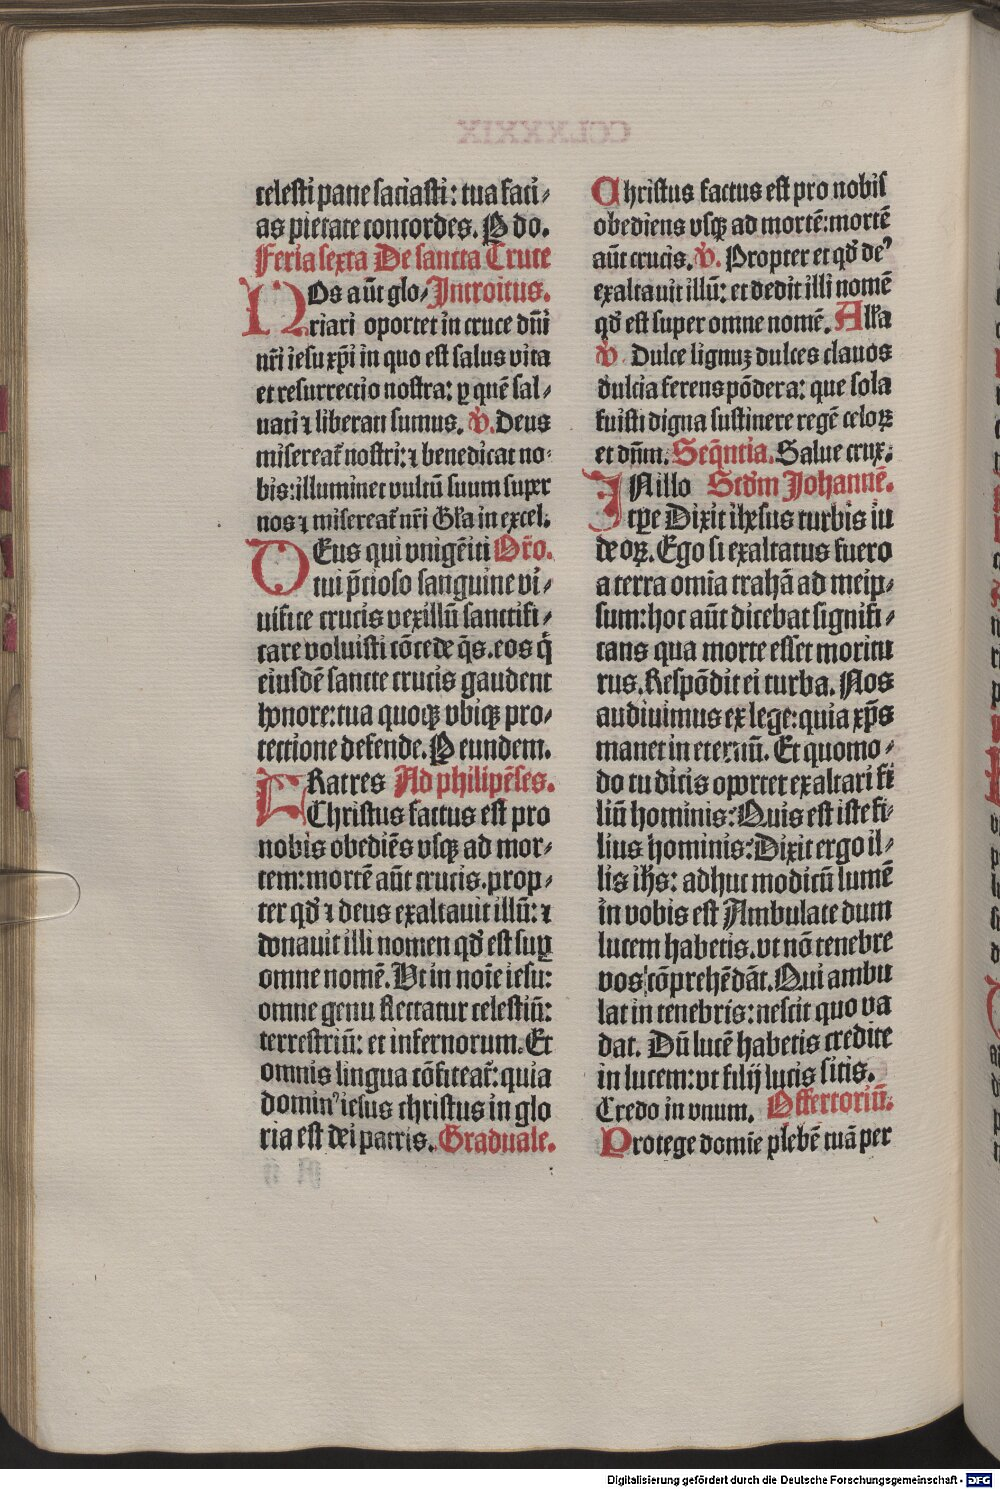 celesti pane saciasti: tua faci⸗
as pietate concordes. P do.
Feria sexta De sancta Cruce
NOs aūt glo⸗ Introitus.
riari oportet in cruce dn̄i
nr̄i iesu xp̄i in quo est salus vita
et resurrectio nostra: ꝑ quē sal⸗
uati ⁊ liberati sumus. V̾. Deus
misereat᷑ nostri: ⁊ benedicat no⸗
bis: illuminet vultū suum super
nos ⁊ misereat᷑ nr̄i Gl̄a in excel.
DEus qui vnigēiti Or̄o.
tui p̄cioso sanguine vi⸗
uifice crucis vexillū sanctifi⸗
care voluisti cōcede q̄s. eos q̄
eiusdē sancte crucis gaudent
honore: tua quoqꝫ vbiqꝫ pro⸗
tectione defende. P eundem.
FRatres Ad philipēses.
Christus factus est pro
nobis obediēs vsqꝫ ad mor⸗
tem: mortē aūt crucis. prop⸗
ter qd̄ ⁊ deus exaltauit illū: ⁊
donauit illi nomen qd̄ est suꝑ
omne nomē. Vt in noīe iesu:
omne genu flectatur celestiū:
terrestriū: et infernorum. Et
omnis lingua cōfiteat᷑: quia
dominꝰ iesus christus in glo
ria est dei patris. Graduale.
Christus factus est pro nobis
obediens vsqꝫ ad mortē: mortē
aūt crucis. V̾. Propter et qd̄ deꝰ
exaltauit illū: et dedit illi nomē
qd̄ est super omne nomē. All̄a
V̾. Dulce lignuꝫ dulces clauos
dulcia ferens pōdera: que sola
fuisti digna sustinere regē celoꝝ
et dn̄m. Seq̄ntia. Salue crux.
IN illo Scd̄m Johannē.
tꝑe Dixit ih̄esus turbis iu
deoꝝ. Ego si exaltatus fuero
a terra omīa trahā ad meip⸗
sum: hoc aūt dicebat signifi⸗
cans qua morte esset moritu
rus. Respōdit ei turba. Nos
audiuimus ex lege: quia xp̄s
manet in eternū. Et quomo⸗
do tu dicis oportet exaltari fi
liū hominis: Quis est iste fi⸗
lius hominis: Dixit ergo il⸗
lis ih̄s: adhuc modicū lumē
in vobis est Ambulate dum
lucem habetis. vt nō tenebre
vos cōprehēdāt. Qui ambu
lat in tenebris: nescit quo va
dat. Dū lucē habetis credite
in lucem: vt filij lucis sitis.
Credo in vnum. Offertoriū.
Protege domīe plebē tuā per
Digitalisierung gefördert durch die Deutsche Forschungsgemeinschaft - DFG